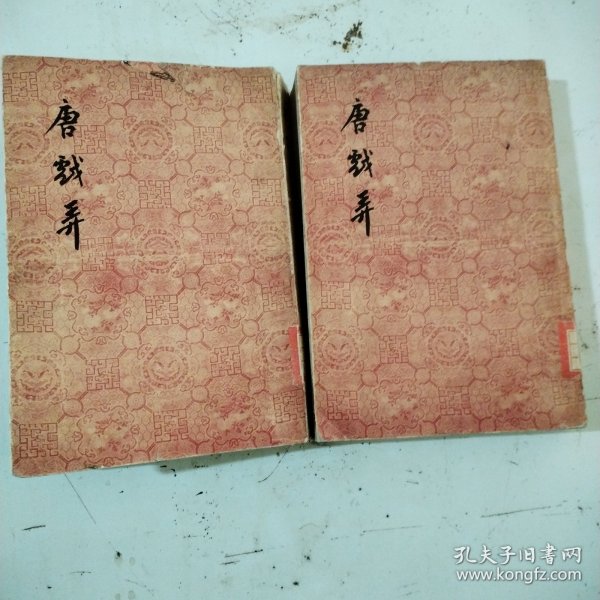 唐戲弄
唐戲弄
孔夫子旧書网
www.kongfz.com